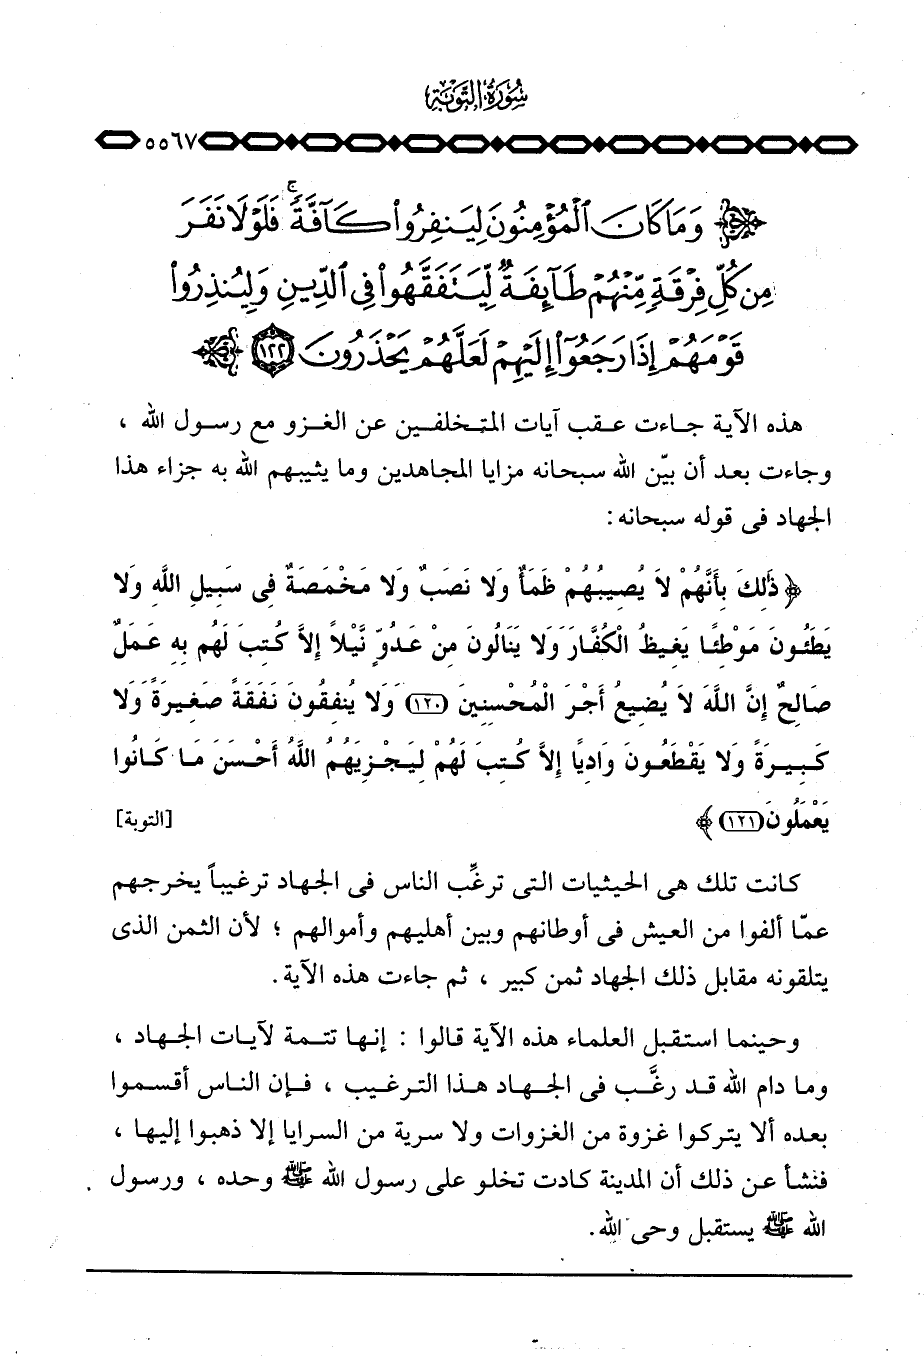 سُورَةُ التَّوْبَةِ
٥٥٦٧
وَمَا كَانَ ٱلْمُؤْمِنُونَ لِيَنفِرُوا۟ كَآفَّةً ۚ فَلَوْلَا نَفَرَ
مِن كُلِّ فِرْقَةٍ مِّنْهُمْ طَآئِفَةٌ لِّيَتَفَقَّهُوا۟ فِى ٱلدِّينِ وَلِيُنذِرُوا۟
قَوْمَهُمْ إِذَا رَجَعُوٓا۟ إِلَيْهِمْ لَعَلَّهُمْ يَحْذَرُونَ ١٢٢
هذه الآية جاءت عقب آيات المتخلفين عن الغزو مع رسول الله ،
وجاءت بعد أن بيّن الله سبحانه مزايا المجاهدين وما يثيبهم الله به جزاء هذا
الجهاد فى قوله سبحانه:
﴿ ذَٰلِكَ بِأَنَّهُمْ لَا يُصِيبُهُمْ ظَمَأٌ وَلَا نَصَبٌ وَلَا مَخْمَصَةٌ فِى سَبِيلِ اللَّهِ وَلَا
يَطَئُونَ مَوْطِئًا يَغِيظُ الْكُفَّارَ وَلَا يَنَالُونَ مِنْ عَدُوٍّ نَّيْلاً إِلاَّ كُتِبَ لَهُم بِهِ عَمَلٌ
صَالِحٌ إِنَّ اللَّهَ لَا يُضِيعُ أَجْرَ الْمُحْسِنِينَ (١٢٠) وَلَا يُنفِقُونَ نَفَقَةً صَغِيرَةً وَلَا
كَبِيرَةً وَلَا يَقْطَعُونَ وَادِيًا إِلاَّ كُتِبَ لَهُمْ لِيَجْزِيَهُمُ اللَّهُ أَحْسَنَ مَا كَانُوا
يَعْمَلُونَ (١٢١) ﴾ [التوبة]
كانت تلك هى الحيثيات التى ترغِّب الناس فى الجهاد ترغيباً يخرجهم
عمّا ألفوا من العيش فى أوطانهم وبين أهليهم وأموالهم ؛ لأن الثمن الذى
يتلقونه مقابل ذلك الجهاد ثمن كبير ، ثم جاءت هذه الآية.
وحينما استقبل العلماء هذه الآية قالوا : إنها تتمة لآيات الجهاد ،
وما دام الله قد رغَّب فى الجهاد هذا الترغيب ، فإن الناس أقسموا
بعده ألا يتركوا غزوة من الغزوات ولا سرية من السرايا إلا ذهبوا إليها ،
فنشأ عن ذلك أن المدينة كادت تخلو على رسول الله ﷺ وحده ، ورسول
الله ﷺ يستقبل وحى الله.